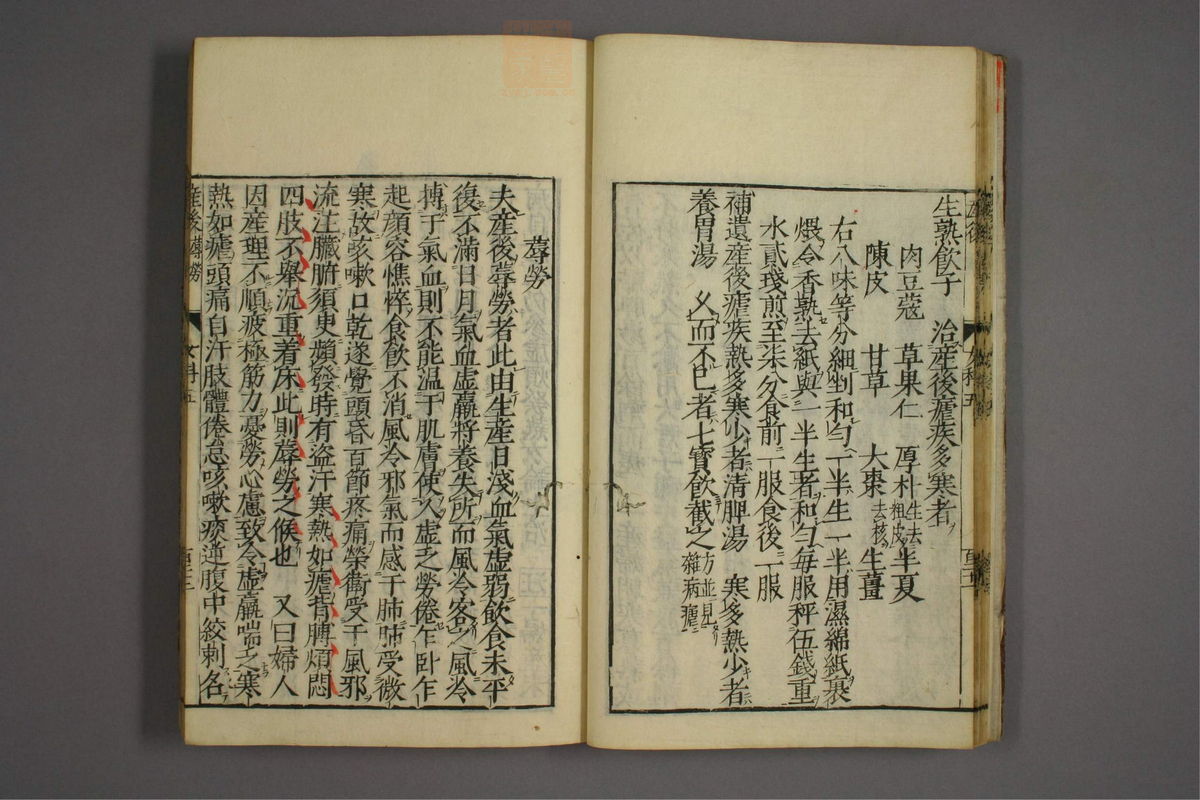 生熟飲子　治産後瘧疾多寒者
肉豆蔻　草果仁　厚朴生去粗皮　半夏
陳皮　甘草　大棗去核　生薑
右八味等分細剉和勻一半生一半用濕綿紙裹
煨令香熟去紙與一半生者和勻毎服秤伍錢重
水貳琖煎至柒分食前一服食後一服
補遺産後瘧疾熱多寒少者清脾湯　寒多熱少者
養胃湯　乆而不已者七寶飲截之方並見雜病瘧
蓐勞
夫産後蓐勞者此由生産日淺血氣虚弱飲食未平
復不滿日月氣血虚羸將養失所而風冷客之風冷
搏于氣血則不能温于肌膚使人虚乏勞倦乍卧乍
起顔容憔悴食飲不消風冷邪氣而感于肺肺受微
寒故咳嗽口乾遂覺頭昏百節疼痛榮衞受于風邪
流注臟腑須臾頻發時有盗汗寒熱如瘧背膊煩悶
四肢不舉沉重着床此則蓐勞之候也　又曰婦人
因産理不順疲極筋力憂勞心慮致令虚羸喘乏寒
熱如瘧頭痛自汗肢體倦怠咳嗽痰逆腹中絞刺名
産後蓐勞